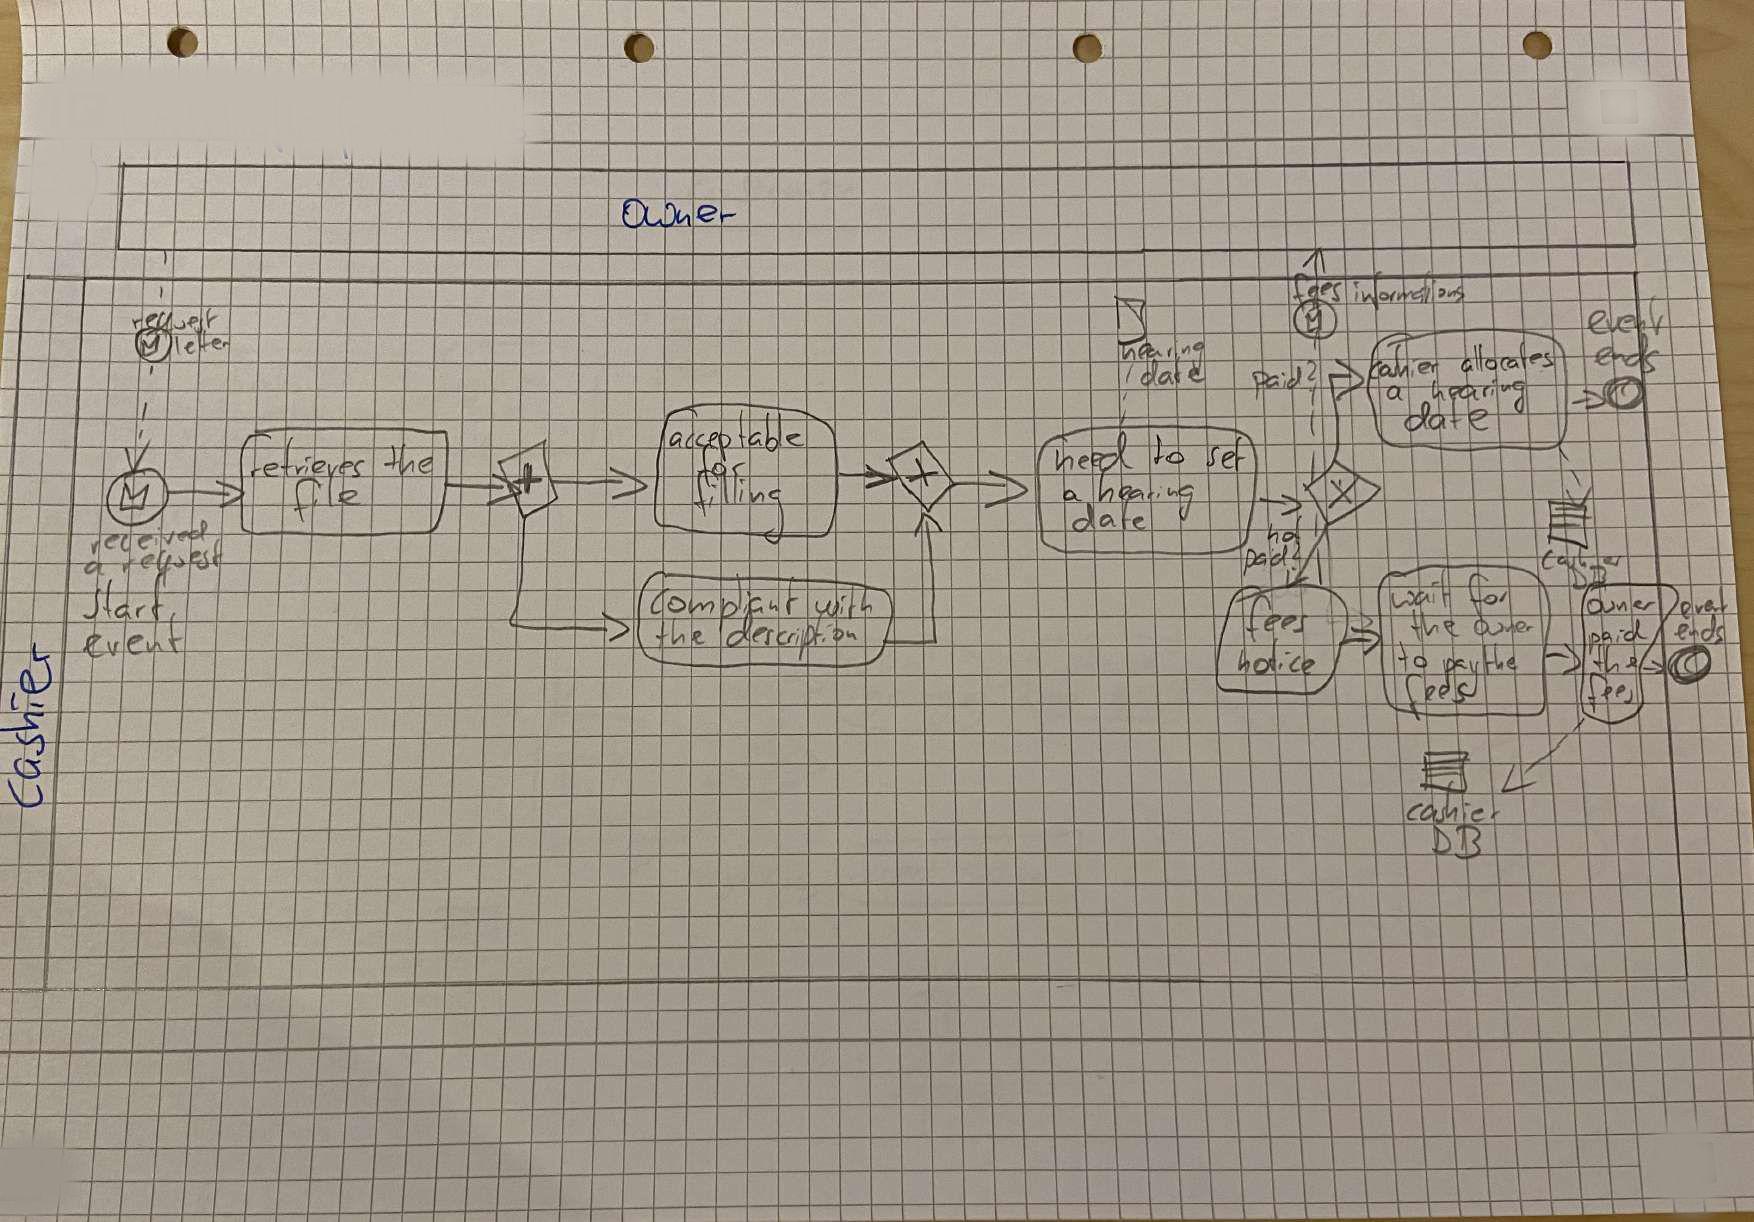 Owner
request
leter
received
a request
start
event
retrieves the
file
acceptable
for
filling
compliant with
the description
hearing
date
need to set
a hearing
date
fees informations
paid?
not
paid?
cahier allocates
a hearing
date
event
ends
fees
notice
wait for
the owner
to pay the
fees
owner
paid
the
fees
event
ends
cashier
DB
Cashier